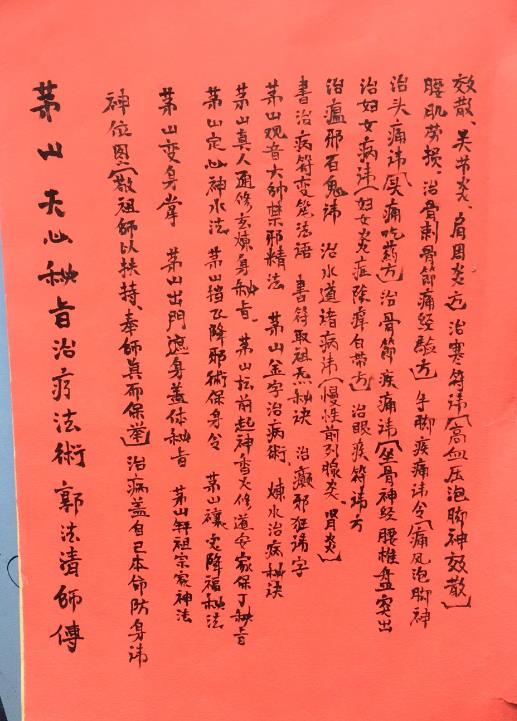 茅山天心秘旨治疗法術 郭法清師傳
神位图【敬祖師以扶持、奉師真而保举】治病盖自己本命防身讳
茅山变身掌 茅山出門遮身蓋体秘旨 茅山解祖宗家神法
茅山定心神水法 茅山挡飞降邪術保身令 茅山禳安降福秘法
茅山真人画修玄煉身秘旨、茅山坛前起神雷火修道安家保丁秘旨
茅山观音大帅禁邪精法 茅山金字治病術、煉水治病秘诀
書治病符变笔法語 書符取祖炁秘诀 治癫邪狂讳字
治瘟邪百鬼讳 治水道诸病讳【慢性前列腺炎、肾炎】
治妇女病讳【妇女炎症除瘴白带方】治眼疾符讳方
治头痛讳【头痛吃药方】治骨節疾痛讳【坐骨神经腰椎盘突出
腰肌劳损、治骨刺骨節痛经驗方】手脚疾痛讳令【痛风泡脚神
效散、关节炎、肩周炎方】治寒符讳【高血压泡脚神效散】